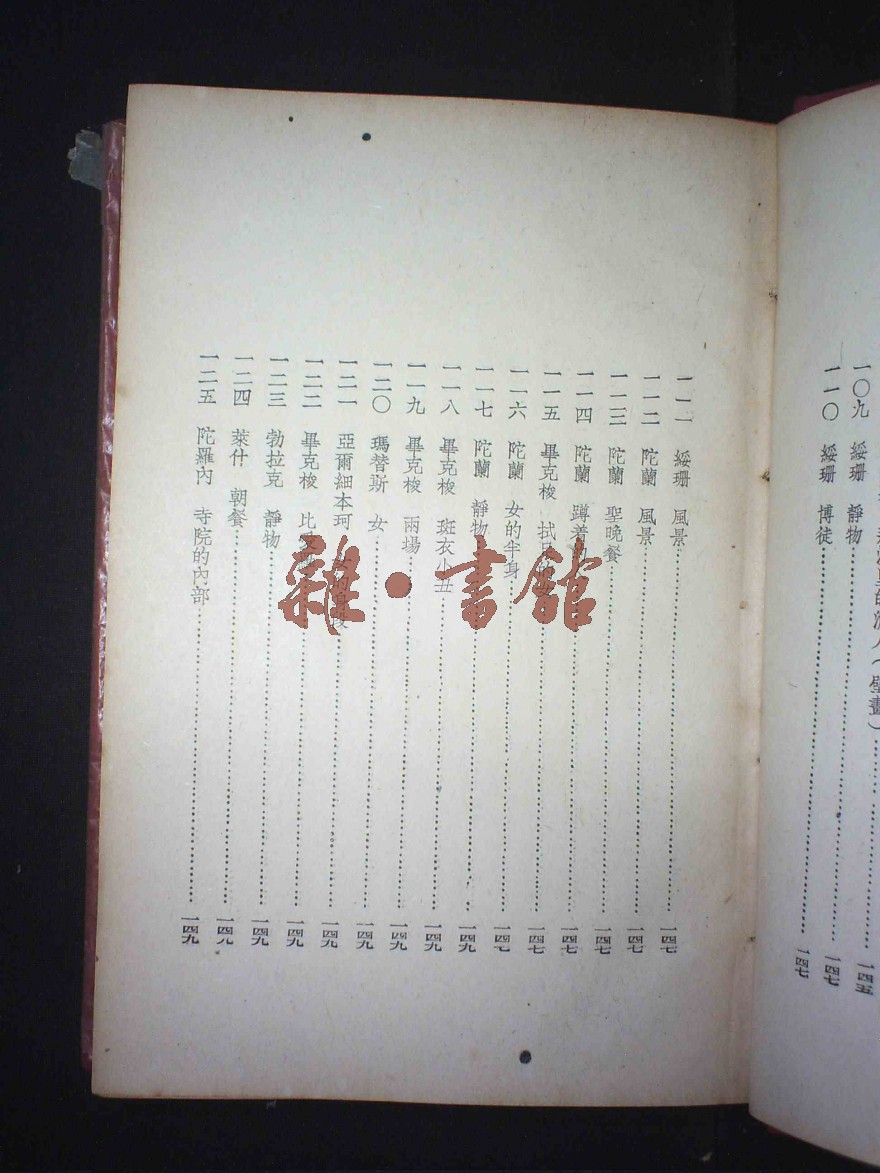 一〇九 綏珊 靜物 一四五
一一〇 綏珊 博徒 一四七
一一一 綏珊 風景 一四七
一一二 陀蘭 風景 一四七
一一三 陀蘭 聖晚餐 一四七
一一四 陀蘭 蹲着 一四七
一一五 畢克梭 拭 女 一四七
一一六 陀蘭 女的半身 一四七
一一七 陀蘭 靜物 一四九
一一八 畢克梭 斑衣小丑 一四九
一一九 畢克梭 兩場 一四九
一二〇 瑪替斯 女 一四九
一二一 亞爾細本珂 一四九
一二二 畢克梭 比 一四九
一二三 勃拉克 靜物 一四九
一二四 萊什 朝餐 一四九
一二五 陀羅內 寺院的內部 一四九
雜·書館